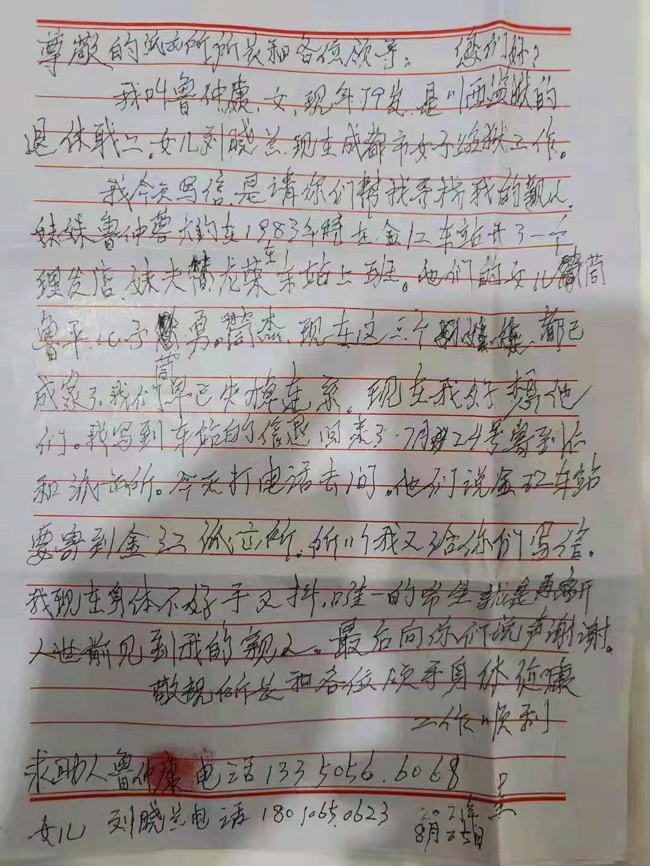 尊敬的派出所所长和各位领导： 您们好？
我叫鲁仲康，女，现年79岁，是川西监狱的
退休职工。女儿刘晓兰现在成都市女子监狱工作。
我今天写信是请你们帮我寻找我的亲人
妹妹鲁仲蓉大约在1983年时在金江车站开了一个
理发店，妹夫龙荣在车站上班。他们的女儿
鲁平，儿子勇。杰，现在这三个都已
成家了，我们早已失掉连系，现在我好想他
们。我写到车站的信退回来了。7月24号寄到仁
和派出所。今天打电话去问。他们说金江车站
要寄到金江派出所，所以我又给你们写信。
我现在身体不好手又抖，唯一的希望就是离开
人世前见到我的亲人。最后向你们说声谢谢。
敬祝所长和各位领导身体健康
工作顺利
求助人鲁仲康 电话 133 5056.6068
女儿 刘晓兰电话 180 1065.0623
8月25日